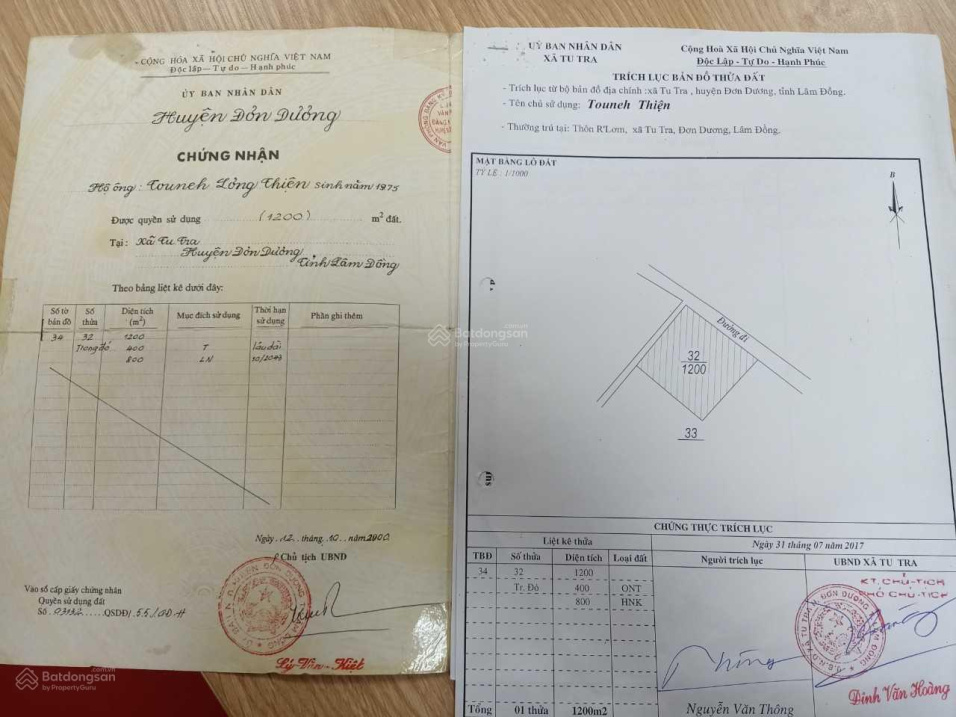 CỘNG HÒA XÃ HỘI CHỦ NGHĨA VIỆT NAM
Độc lập — Tự do — Hạnh phúc
ỦY BAN NHÂN DÂN
Huyện Đơn Dương
CHỨNG NHẬN
Hộ ông: Touneh Lòng Thiện sinh năm 1975
Được quyền sử dụng (1200) m² đất.
Tại: Xã Tu Tra
Huyện Đơn Dương
Tỉnh Lâm Đồng
Theo bảng liệt kê dưới đây:
Số tờ bản đồ Số thửa Diện tích (m²) Mục đích sử dụng Thời hạn sử dụng Phần ghi thêm
34 32 1200
Trong đó 400 T lâu dài
800 LN
Ngày 12 tháng 10 năm 2000
Chủ tịch UBND
Vào sổ cấp giấy chứng nhận
Quyền sử dụng đất
Số QSDĐ/
Lý Văn Kiệt
UỶ BAN NHÂN DÂN
XÃ TU TRA
Cộng Hoà Xã Hội Chủ Nghĩa Việt Nam
Độc Lập - Tự Do - Hạnh Phúc
TRÍCH LỤC BẢN ĐỒ THỬA ĐẤT
- Trích lục từ bộ bản đồ địa chính :xã Tu Tra , huyện Đơn Dương, tỉnh Lâm Đồng.
- Tên chủ sử dụng: Touneh Thiện
- Thường trú tại: Thôn R'Lơm, xã Tu Tra, Đơn Dương, Lâm Đồng.
MẶT BẰNG LÔ ĐẤT
TỶ LỆ : 1/1000
B
Đường đi
32
1200
33
CHỨNG THỰC TRÍCH LỤC
Liệt kê thửa Ngày 31 tháng 07 năm 2017
TBĐ Số thửa Diện tích Loại đất Người trích lục UBND XÃ TU TRA
34 32 1200
KT. CHỦ TỊCH
PHÓ CHỦ TỊCH
Tr. Đó 400 ONT
800 HNK
Đinh Văn Hoàng
Tổng 01 thửa 1200m2 Nguyễn Văn Thông
Batdongsan
by PropertyGuru
Batdongsan
by PropertyGuru
Batdongsan
by PropertyGuru